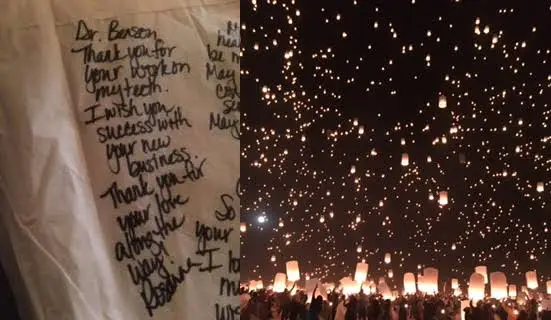 Dr. Benson,
Thank you for
your work on
my teeth.
I wish you
success with
your new
business.
Thank you for
your love
along the
way!
be
May
May
So
your
I